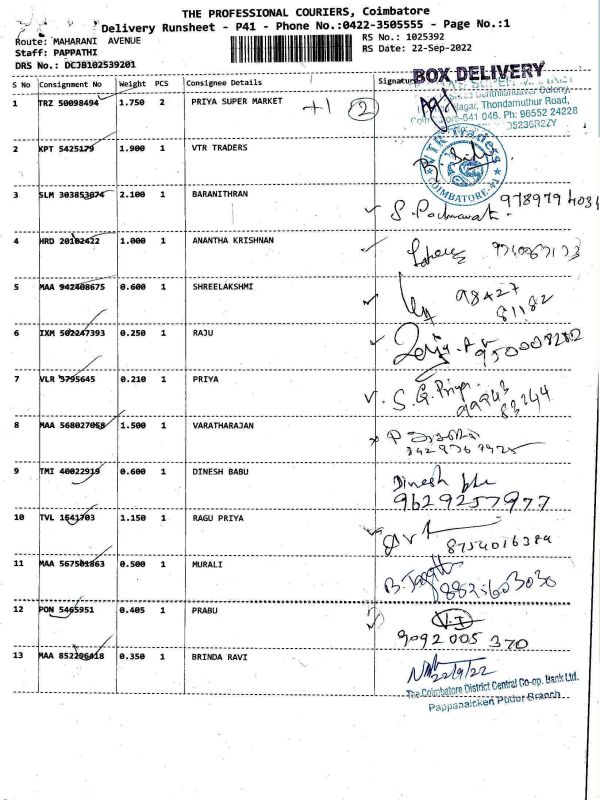 THE PROFESSIONAL COURIERS, Coimbatore
Delivery Runsheet - P41 - Phone No.:0422-3505555 - Page No.:1
Route: MAHARANI AVENUE
Staff: PAPPATHI
DRS No.: DCJB102539201
RS No.: 1025392
RS Date: 22-Sep-2022
S No Consignment No Weight PCS Consignee Details Signature
BOX DELIVERY
1 TRZ 50098494 1.750 2 PRIYA SUPER MARKET +1 2
Nagar, Thondamuthur Road,
641 046. Ph: 96552 24228
2 KPT 5425179 1.900 1 VTR TRADERS
VTR Traders
COIMBATORE-41
3 SLM 303853074 2.100 1 BARANITHRAN
4 HRD 20102422 1.000 1 ANANTHA KRISHNAN
5 MAA 942408675 0.600 1 SHREELAKSHMI
98427
81182
6 IXM 502247393 0.250 1 RAJU
7 VLR 3795645 0.210 1 PRIYA
S.G. Priya.
99943
83244
8 MAA 568027058 1.500 1 VARATHARAJAN
9 TMI 40022919 0.600 1 DINESH BABU
Dinesh
9629257977
10 TVL 1641703 1.150 1 RAGU PRIYA
8754016384
11 MAA 567501863 0.500 1 MURALI
8825603030
12 PON 5465951 0.405 1 PRABU
V.I
9092005370
13 MAA 852296418 0.350 1 BRINDA RAVI
22/9/22
The Coimbatore District Central Co-op. Bank Ltd.
Pappanaicken Pudur Branch